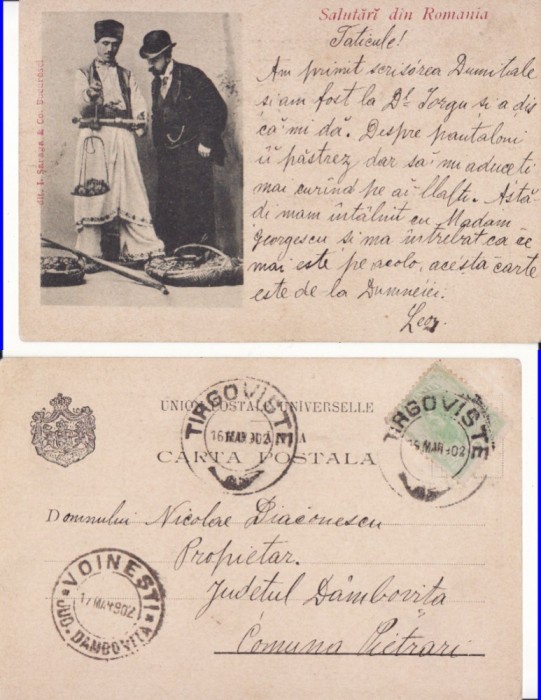 Salutări din Romania
Edit. I. Saraga & Co. Bucuresci
Taticule!
Am primit scrisórea Dumitale
si am fost la Dl Iorgu si a dis
că mi dă. Despre pantaloni
ii păstrez dar să mi aduceti
mai curind pe ai Astă-
di mam întâlnit cu Madam
Georgescu si ma întrebat ca ce
mai este pe acolo, acésta carte
este de la Dumneiei.
UNION POSTALE UNIVERSELLE
CARTA POSTALA
TIRGOVISTE
16 MAR 902
TIRGOVISTE
MAR 902
Domnului Nicolae Diaconescu
Propietar.
Judetul Dâmbovita
Comuna Pietrari
VOINESTI
17 MAR 902
JUD. DAMBOVITA